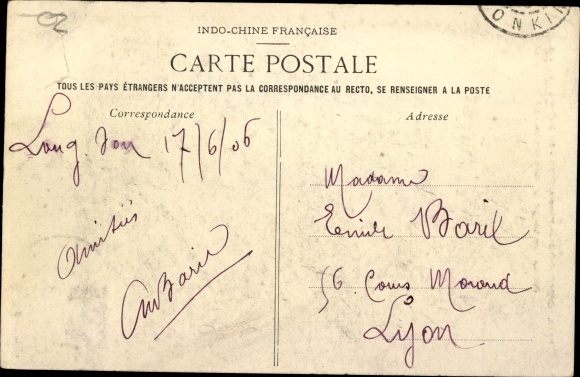 ONKIN
INDO-CHINE FRANÇAISE
CARTE POSTALE
TOUS LES PAYS ÉTRANGERS N'ACCEPTENT PAS LA CORRESPONDANCE AU RECTO, SE RENSEIGNER A LA POSTE
Correspondance
Lang Son 17/6/06
Amitiés
Baril
Adresse
Madame
Emile Baril
56 Cours Morand
Lyon